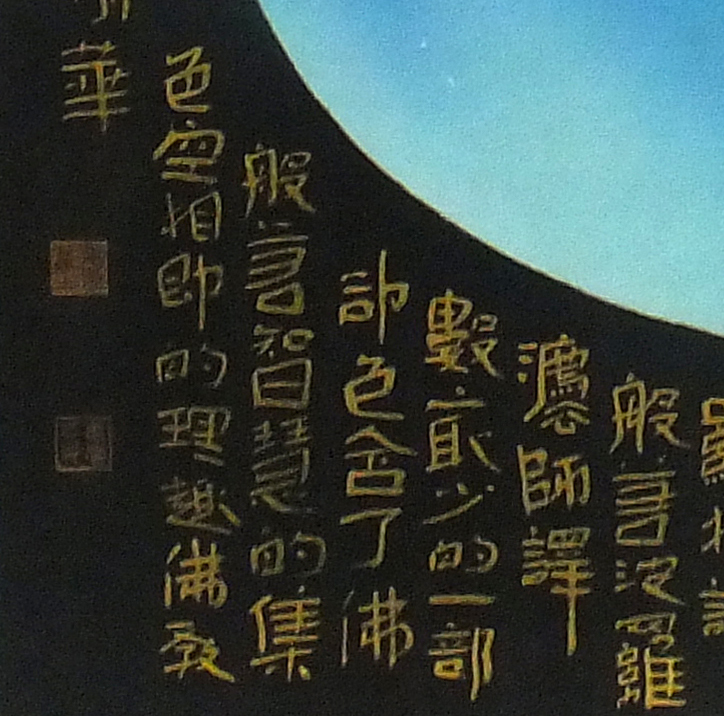 般若波羅
灋師譯
數最少的一部
色含了佛
般若智慧的集
色空相即的理趣佛教
華